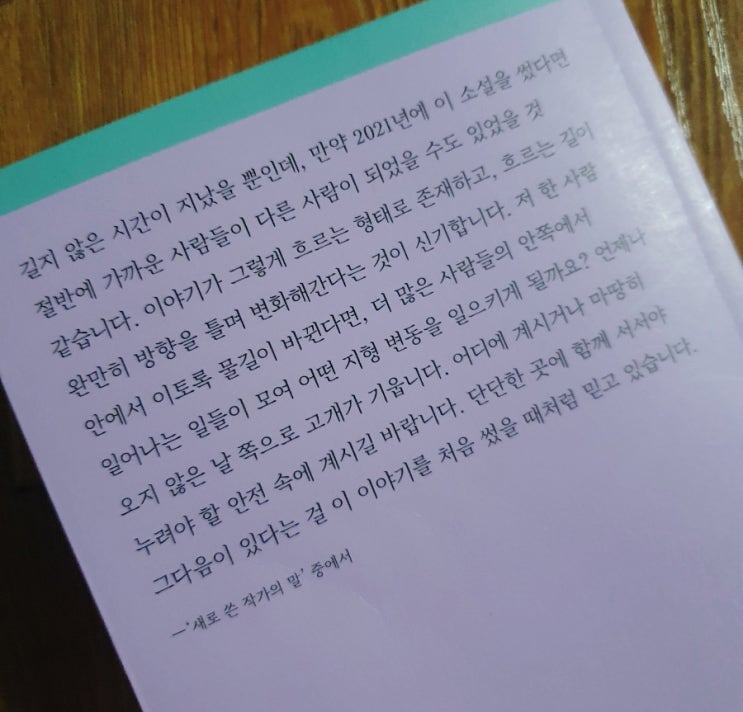 길지 않은 시간이 지났을 뿐인데, 만약 2021년에 이 소설을 썼다면
절반에 가까운 사람들이 다른 사람이 되었을 수도 있었을 것
같습니다. 이야기가 그렇게 흐르는 형태로 존재하고, 흐르는 길이
완만히 방향을 틀며 변화해간다는 것이 신기합니다. 저 한 사람
안에서 이토록 물길이 바뀐다면, 더 많은 사람들의 안쪽에서
일어나는 일들이 모여 어떤 지형 변동을 일으키게 될까요? 언제나
오지 않은 날 쪽으로 고개가 기웁니다. 어디에 계시거나 마땅히
누려야 할 안전 속에 계시길 바랍니다. 단단한 곳에 함께 서서야
그다음이 있다는 걸 이 이야기를 처음 썼을 때처럼 믿고 있습니다.
—‘새로 쓴 작가의 말’ 중에서